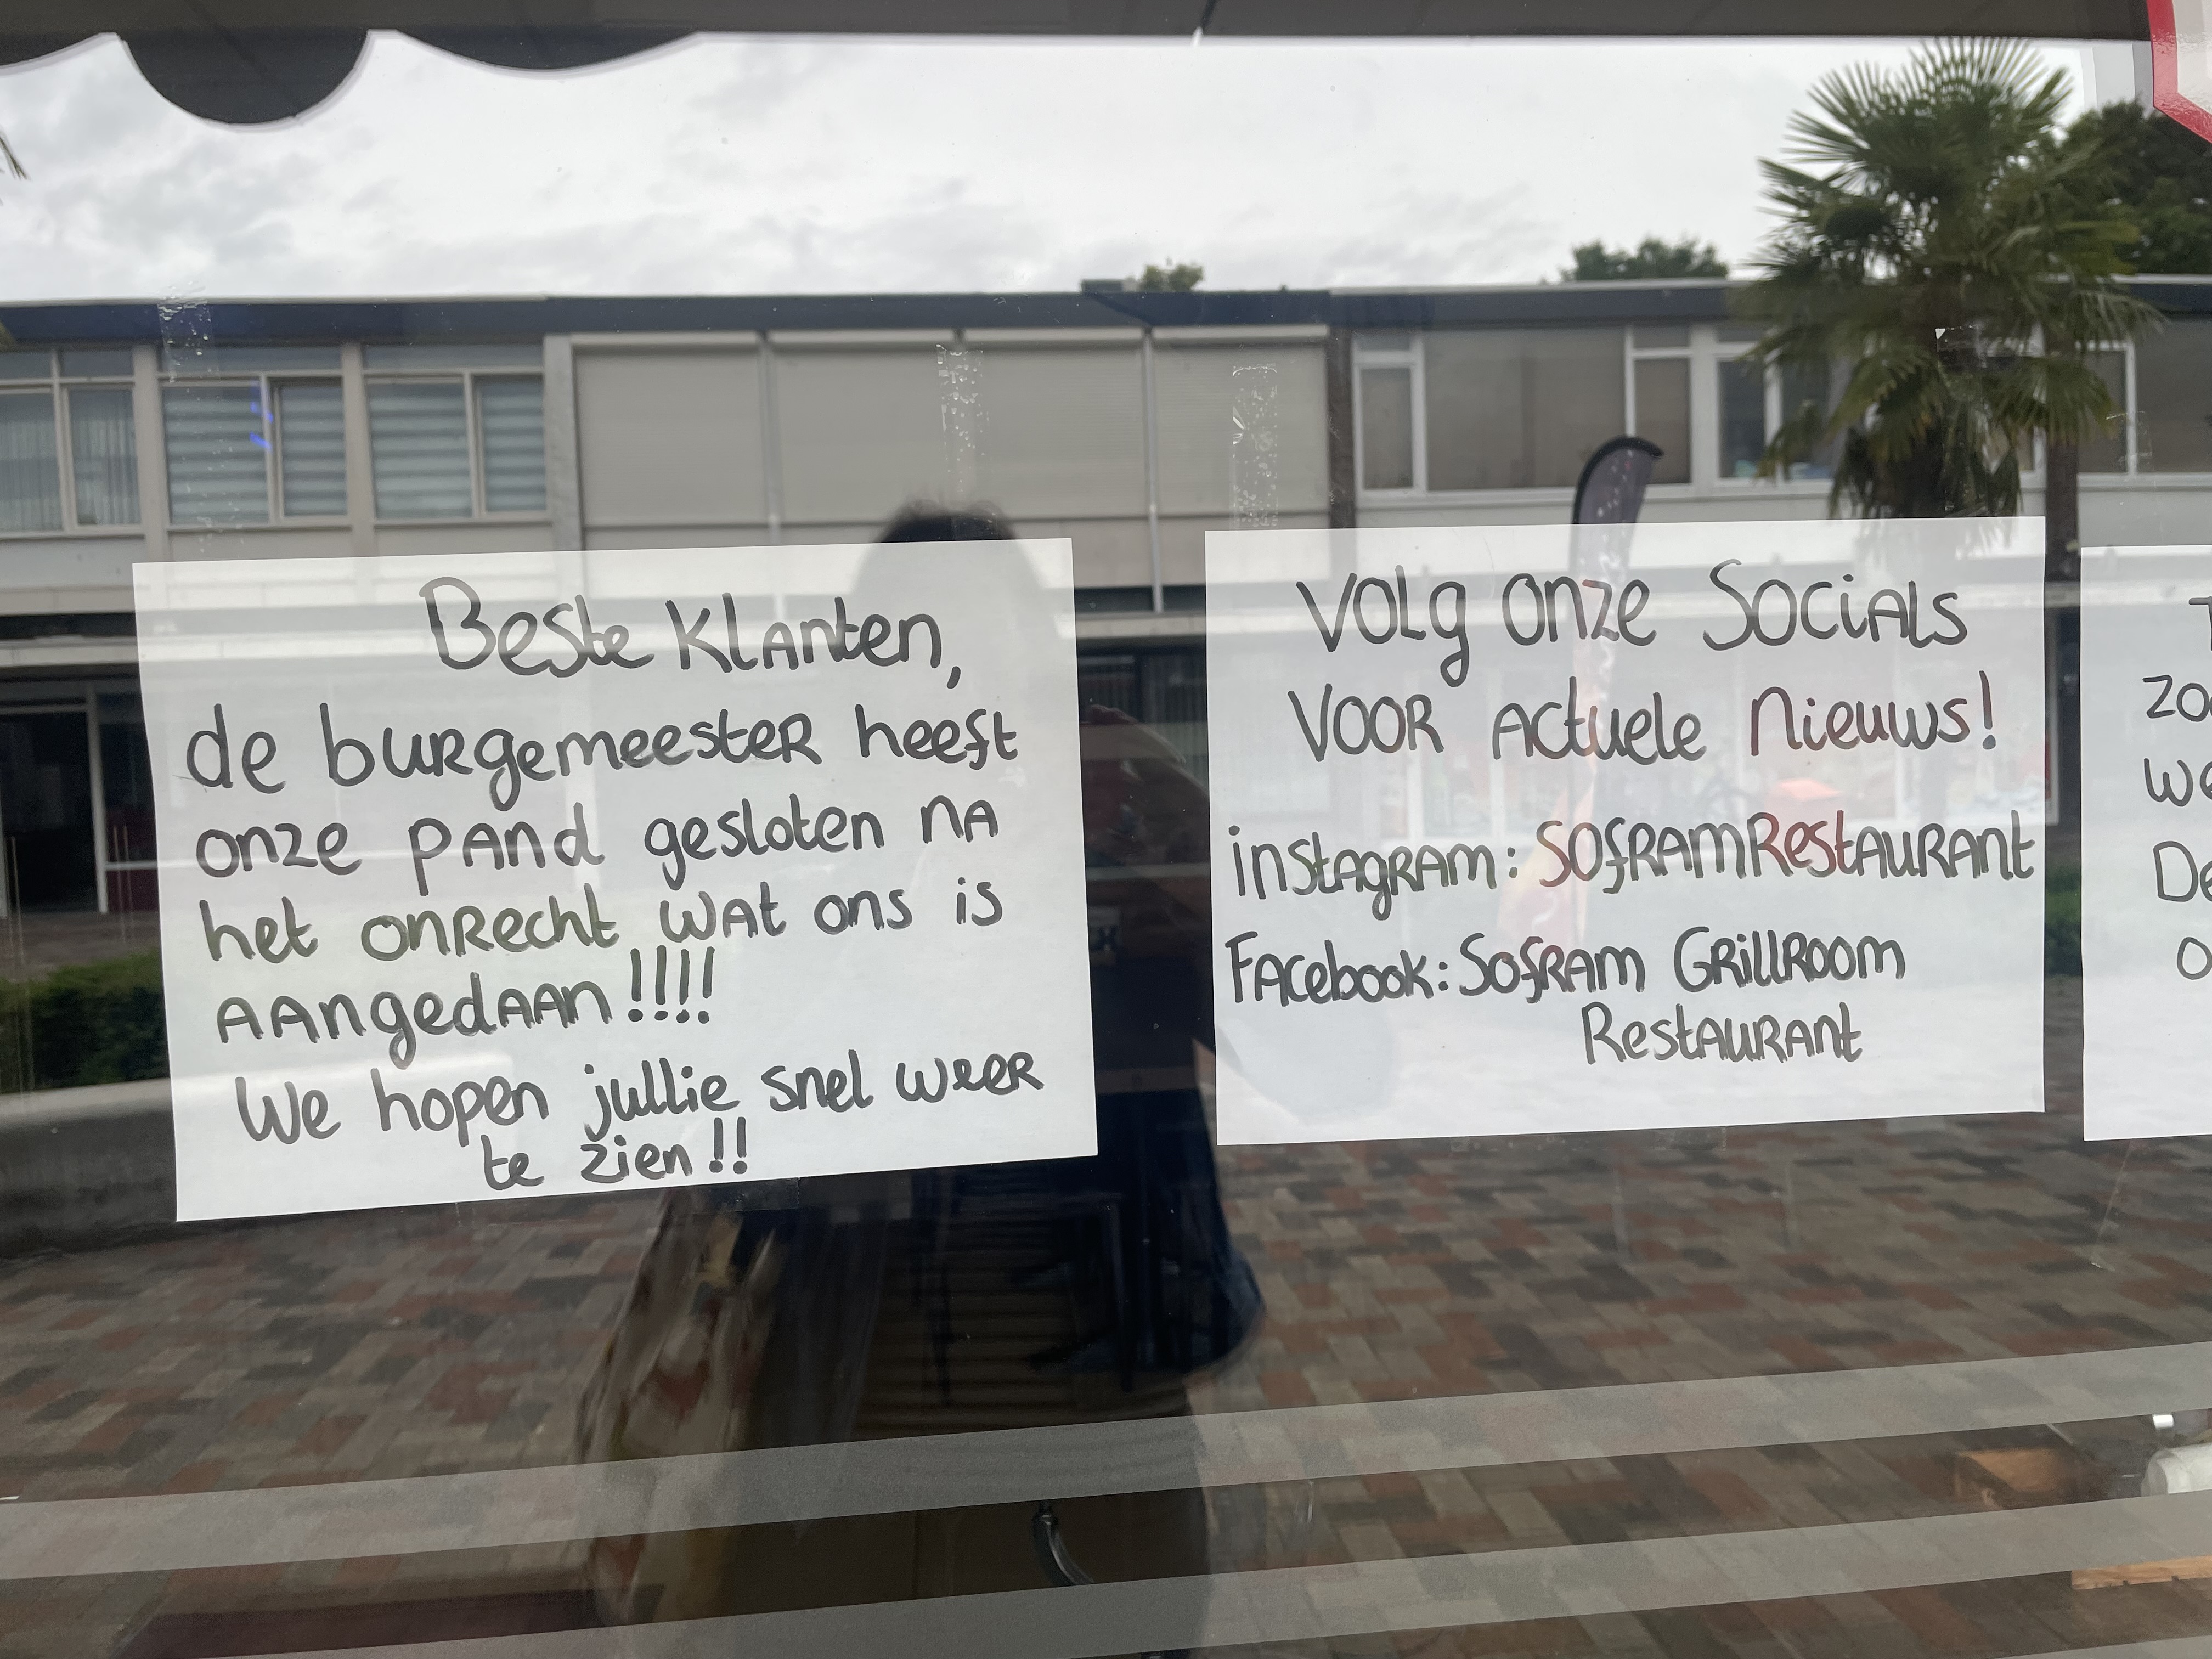 Beste Klanten,
de burgemeester heeft
onze pand gesloten na
het onrecht wat ons is
aangedaan!!!!
We hopen jullie snel weer
te zien!!
Volg onze Socials
voor actuele nieuws!
instagram: Soframrestaurant
Facebook: Sofram Grillroom
Restaurant